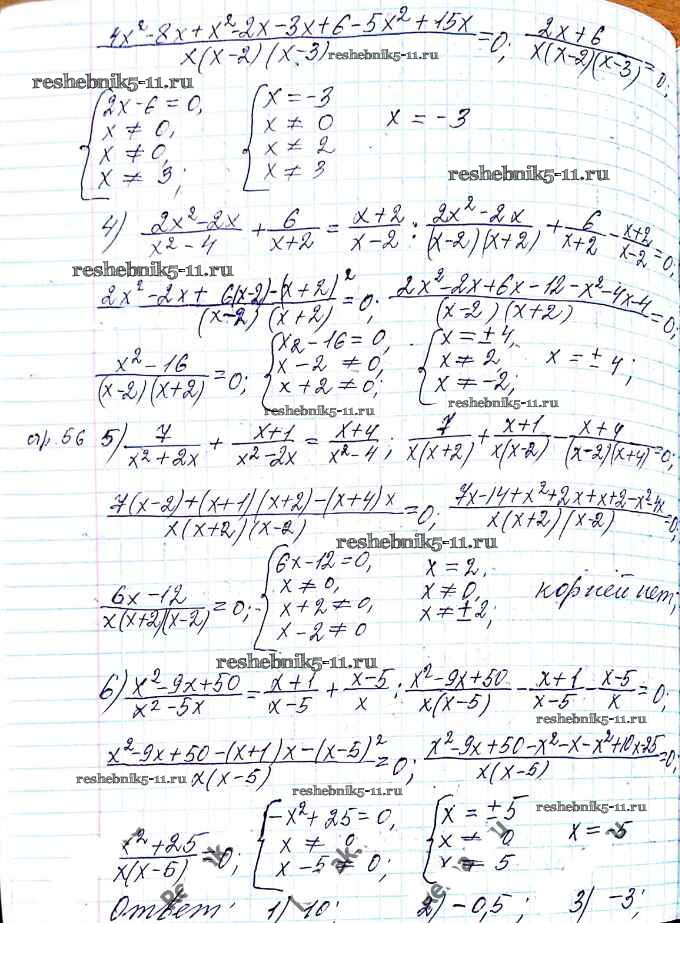 4x² - 8x + x² - 2x - 3x + 6 - 5x² + 15x / x(x-2)(x-3) = 0; 2x + 6 / x(x-2)(x-3) = 0;
reshebnik5-11.ru
{ 2x - 6 = 0, x ≠ 0, x ≠ 0, x ≠ 3; { x = -3 x ≠ 0 x ≠ 2 x ≠ 3 x = -3
reshebnik5-11.ru
4) 2x² - 2x / x² - 4 + 6 / x+2 = x+2 / x-2 ; 2x² - 2x / (x-2)(x+2) + 6 / x+2 - x+2 / x-2 = 0;
reshebnik5-11.ru
2x² - 2x + 6(x-2) - (x+2)² / (x-2)(x+2) = 0; 2x² - 2x + 6x - 12 - x² - 4x - 4 / (x-2)(x+2) = 0;
x² - 16 / (x-2)(x+2) = 0; { x2 - 16 = 0, x - 2 ≠ 0, x + 2 ≠ 0; { x = ±4, x ≠ 2 x ≠ -2; x = ±4;
reshebnik5-11.ru
стр. 56 5) 7 / x² + 2x + x+1 / x² - 2x = x+4 / x² - 4 ; 7 / x(x+2) + x+1 / x(x-2) - x+4 / (x-2)(x+4) = 0;
7(x-2) + (x+1)(x+2) - (x+4)x / x(x+2)(x-2) = 0; 7x - 14 + x² + 2x + x + 2 - x² - 4x / x(x+2)(x-2) = 0;
reshebnik5-11.ru
6x - 12 / x(x+2)(x-2) = 0; { 6x - 12 = 0, x ≠ 0, x + 2 ≠ 0, x - 2 ≠ 0 x = 2, x ≠ 0, x ≠ ±2; корней нет;
reshebnik5-11.ru
6) x² - 9x + 50 / x² - 5x = x+1 / x-5 + x-5 / x ; x² - 9x + 50 / x(x-5) - x+1 / x-5 - x-5 / x = 0;
reshebnik5-11.ru
x² - 9x + 50 - (x+1)x - (x-5)² / x(x-5) = 0; x² - 9x + 50 - x² - x - x² + 10x - 25 / x(x-5) = 0;
reshebnik5-11.ru
reshebnik5-11.ru
reshebnik5-11.ru
x² + 25 / x(x-5) = 0; { -x² + 25 = 0, x ≠ 0 x - 5 ≠ 0; { x = ±5 x ≠ 0 x ≠ 5 x = -5
Ответ: 1) 10; 2) -0,5; 3) -3;